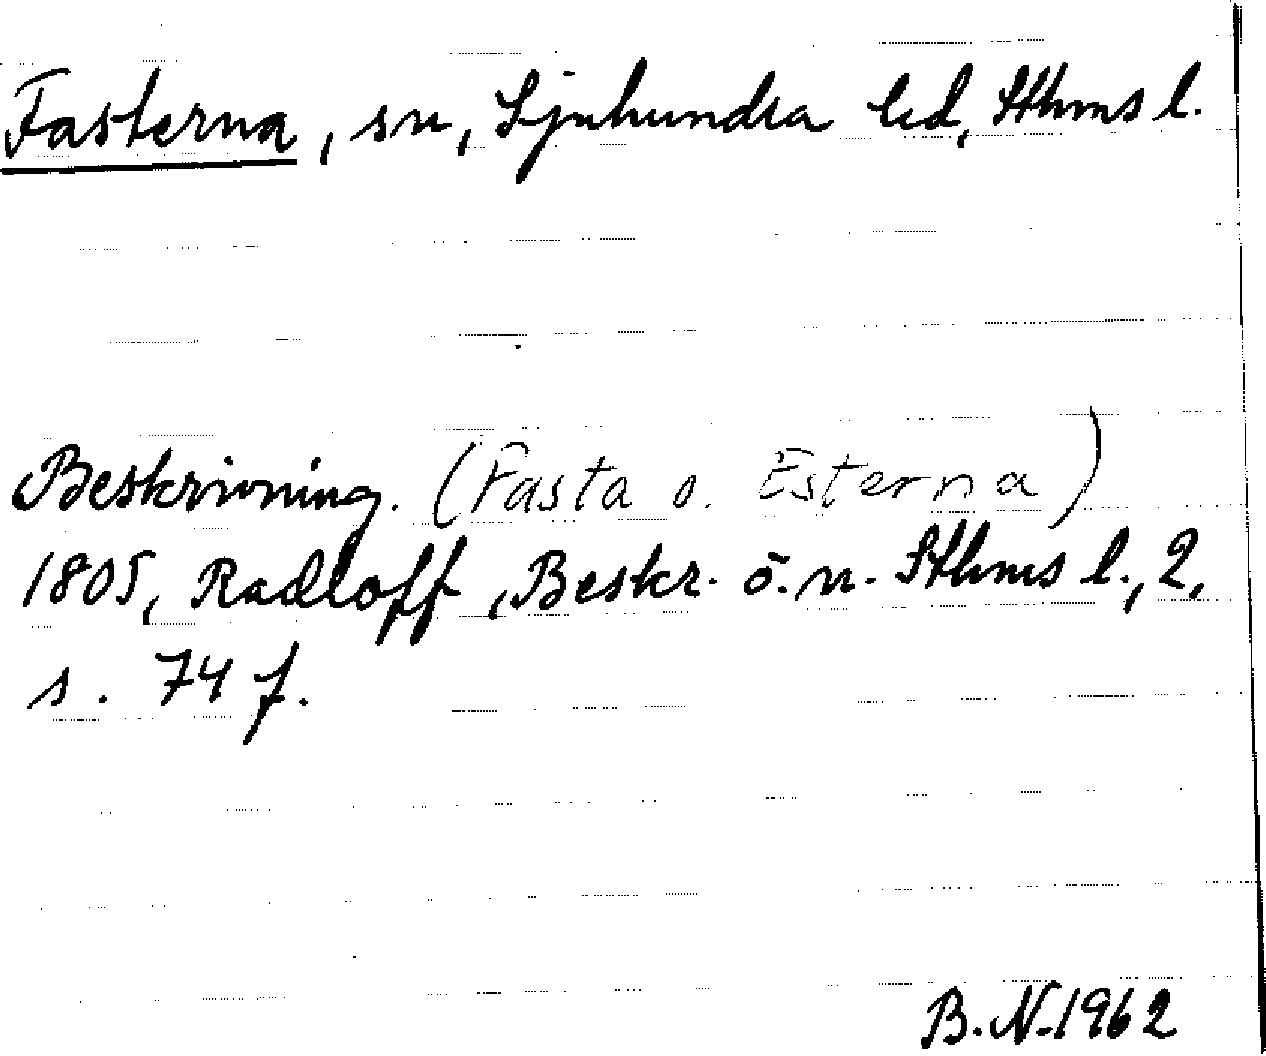 Fasterna, sn, Sjuhundra hd, Sthms l.
Beskrivning. (Fasta o. Esterna)
1805, Radloff, Beskr. ö. n. Sthms l., 2,
s. 74 f.
B. N. 1962